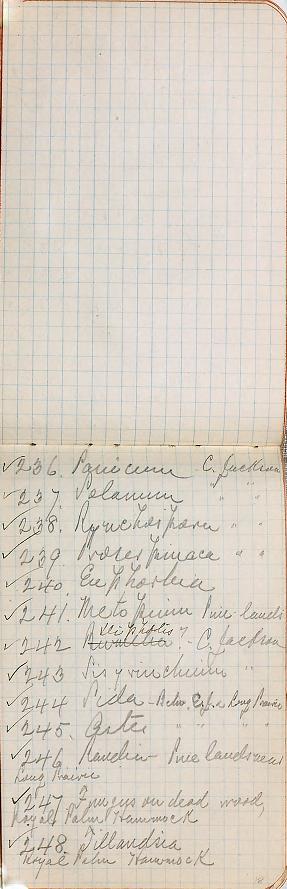 ✓236. Panicum C. Jackson
✓237. Solanum " "
✓238. Rynchospora " "
✓239 Proserpinaca " "
✓240. Euphorbia
✓241. Metopium Pine-lands
✓242 - C. Jackson
✓243 Sisyrinchium "
✓244 Sida - Betw. & Long Prairie
✓245. Aster " " "
✓246. Randia Pine lands near
Long Prairie
✓247. Fungus on dead wood,
Royal Palm Hammock
✓248. Tillandsia
Royal Palm Hammock